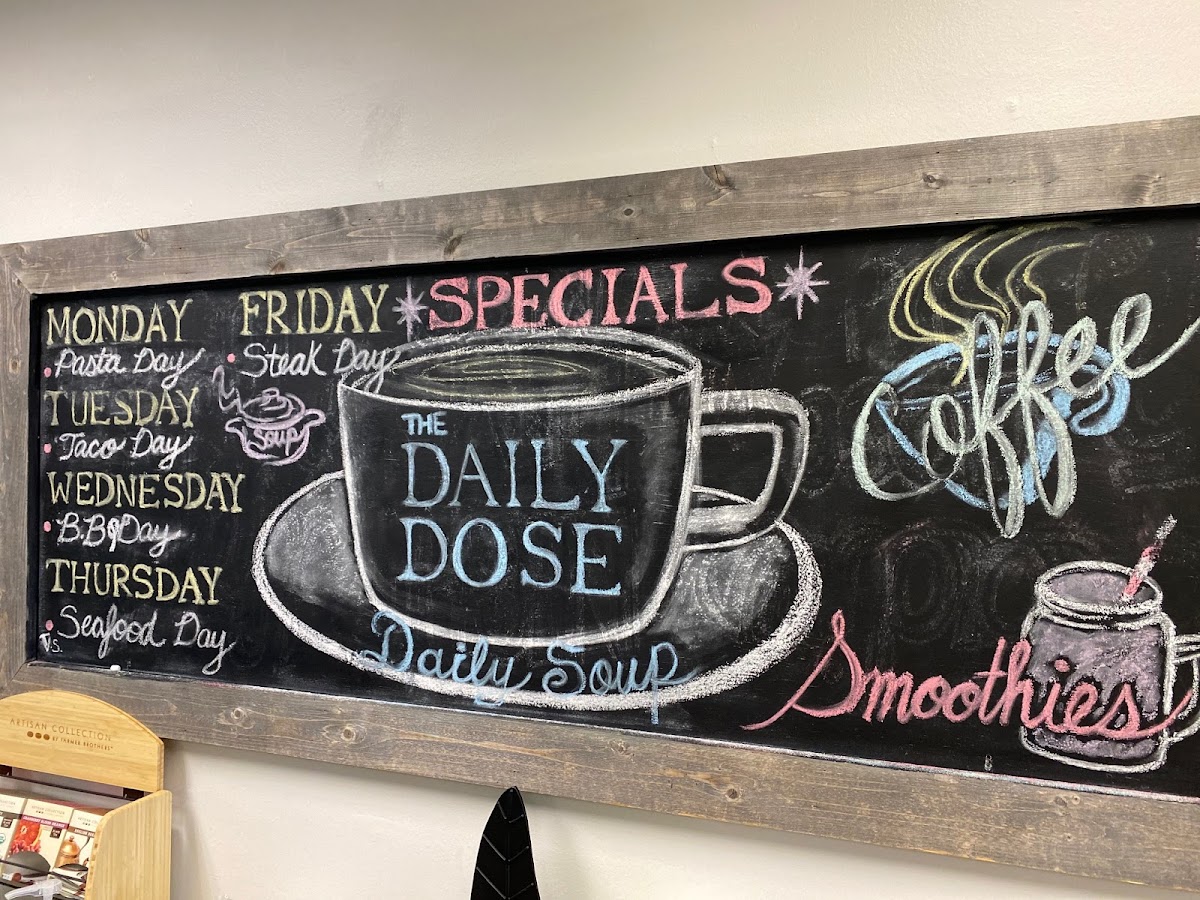 MONDAY
Pasta Day
TUESDAY
Taco Day
WEDNESDAY
B.Bq Day
THURSDAY
Seafood Day
FRIDAY
Steak Day
Soup
SPECIALS
THE
DAILY
DOSE
Daily Soup
Coffee
Smoothies
ARTISAN COLLECTION
BY FARMER BROTHERS